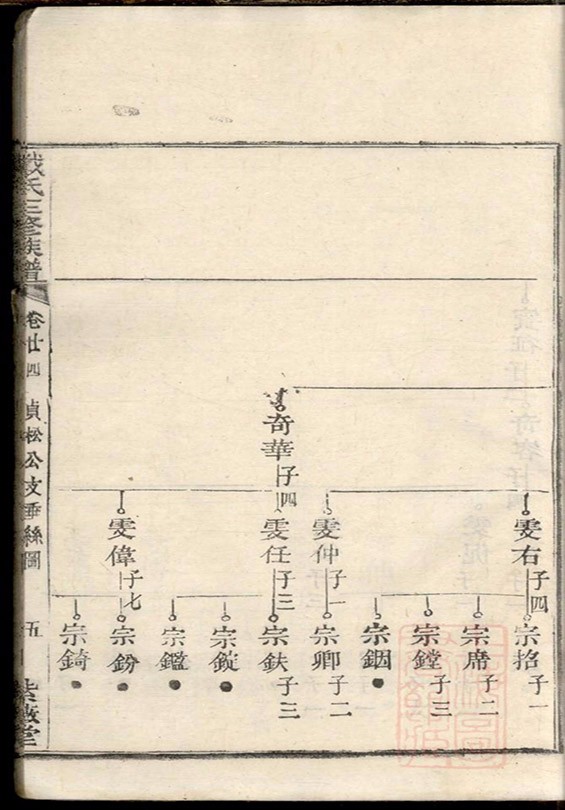 奇華 子四
雯右 子四
雯仲 子一
雯任 子三
雯偉 子七
宗招 子一
宗席 子二
宗鏜 子三
宗錮
宗卿 子二
宗鈇 子三
宗錠
宗鑑
宗鈖
宗錡
氏三修族譜
卷廿四
貞松公支垂絲圖
五
紫薇堂